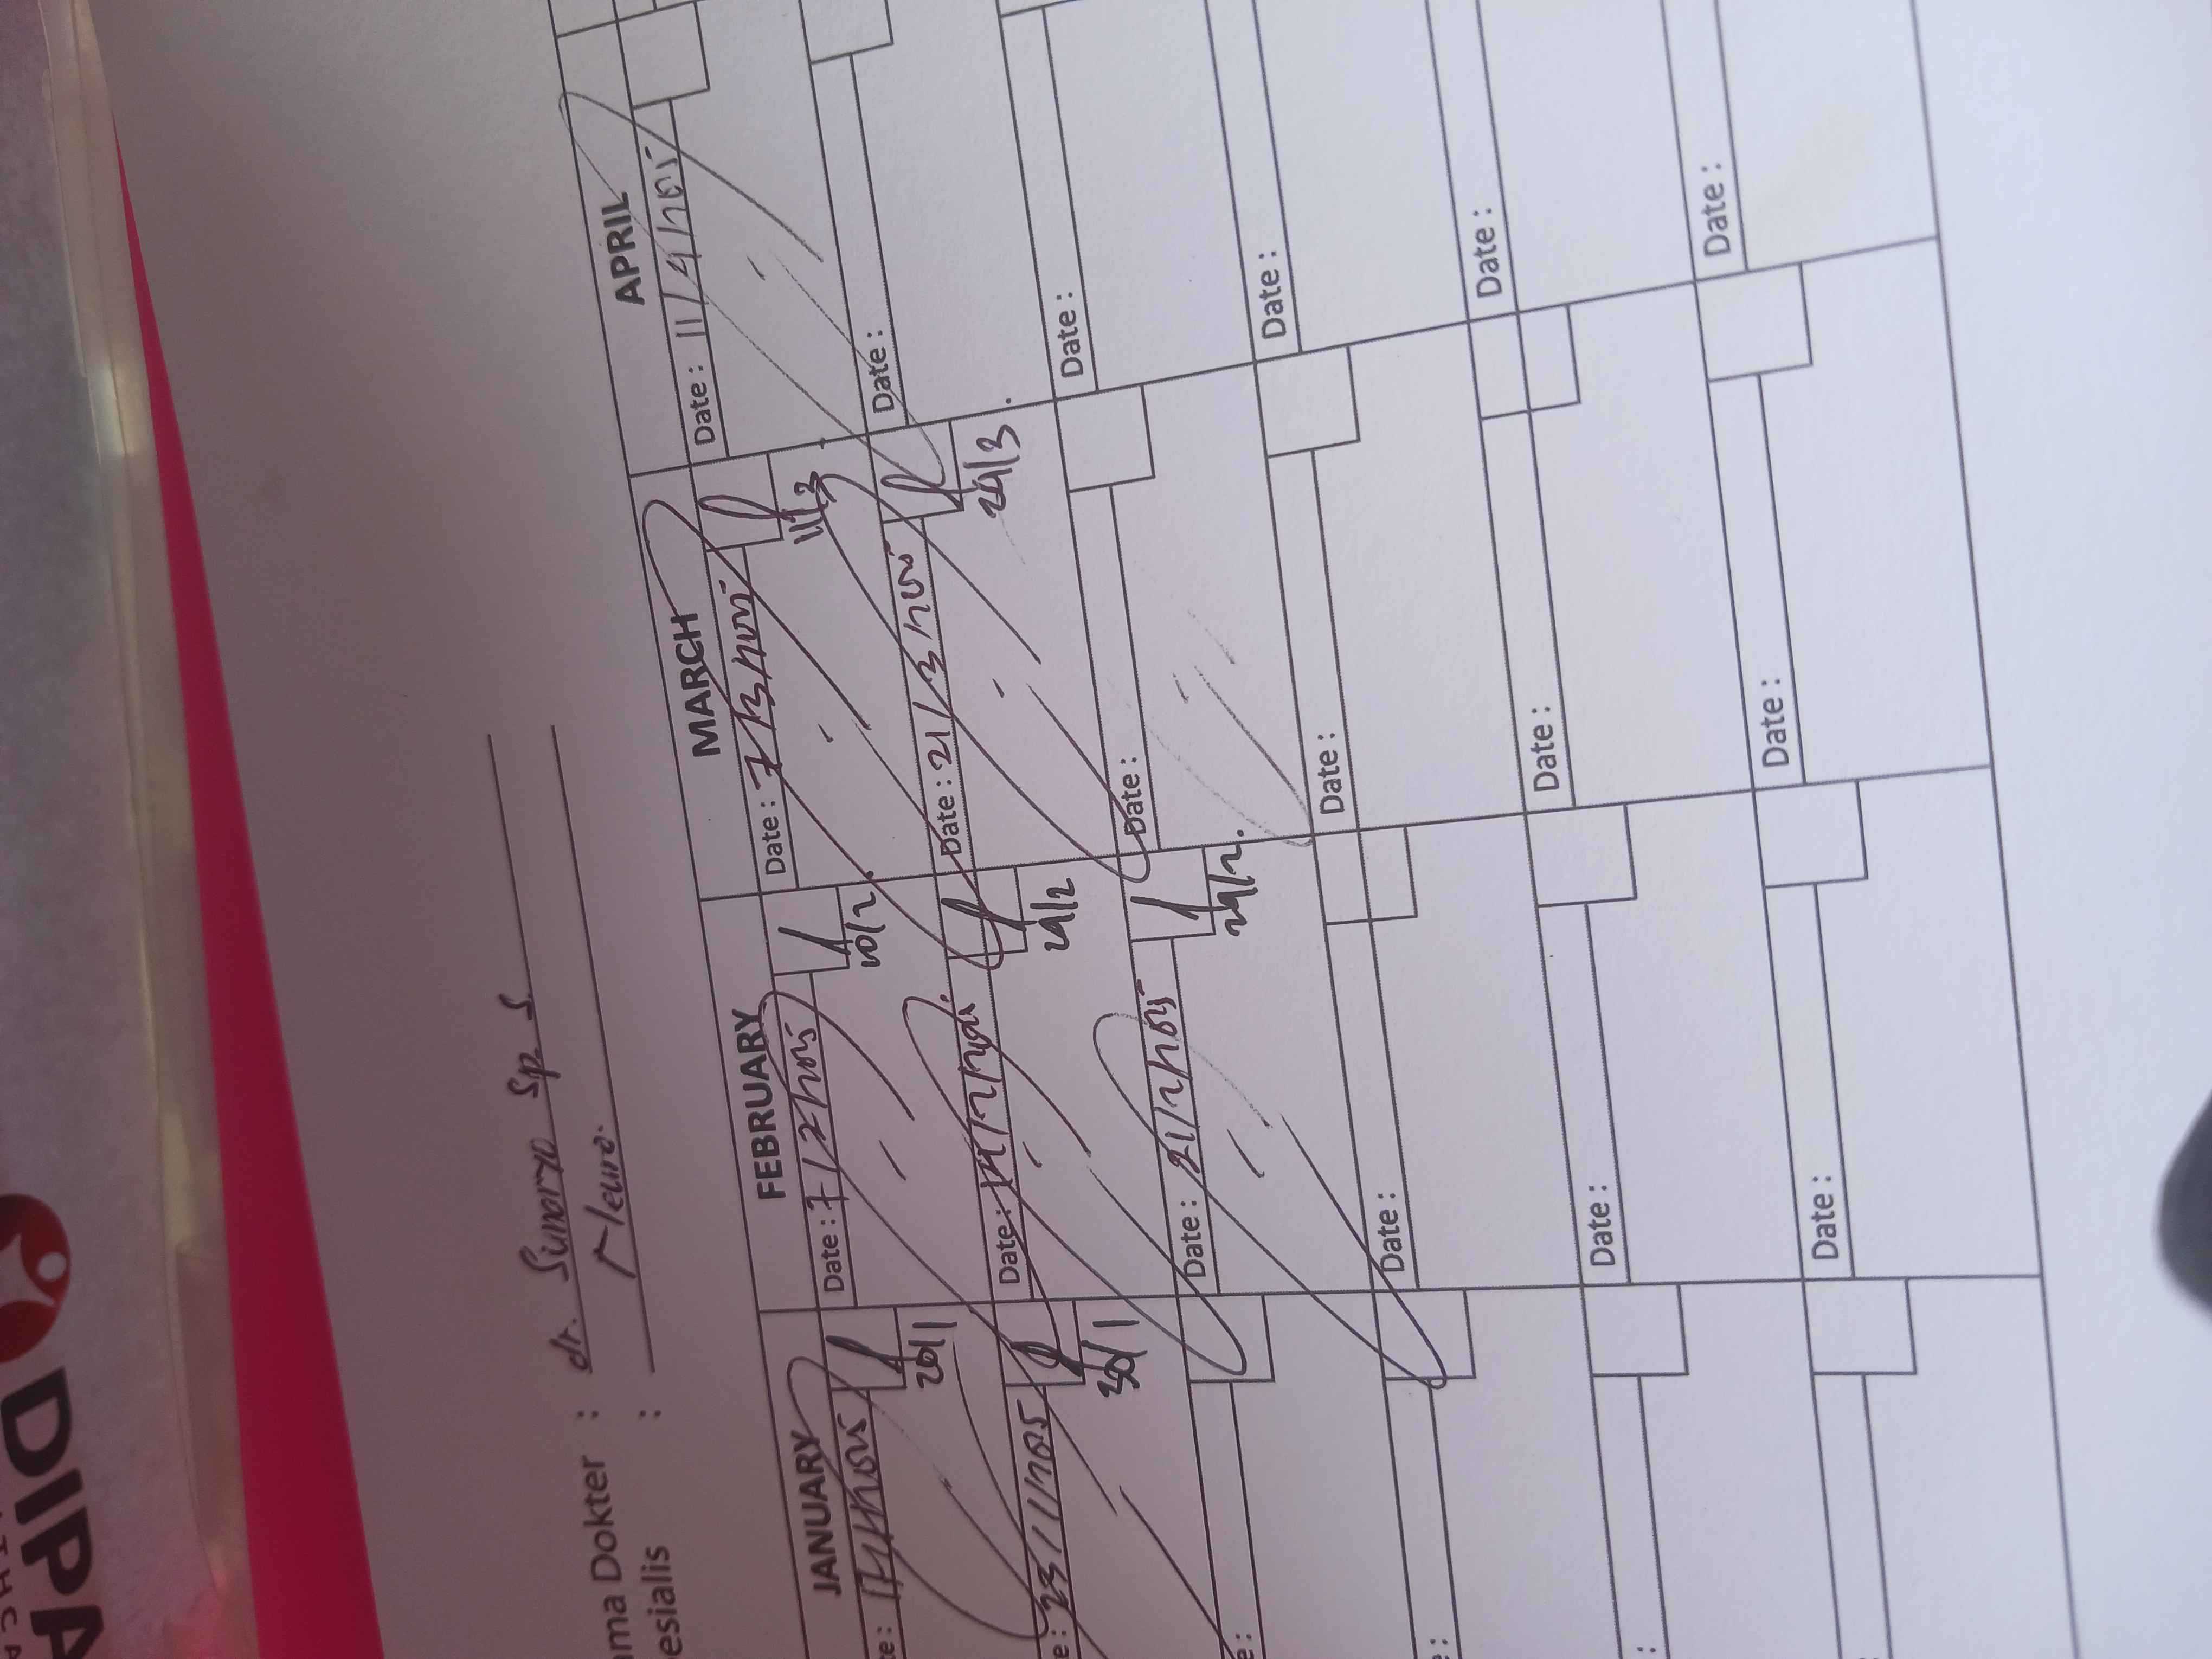 DIPA
ma Dokter : dr. Sunaryo Sp. S
esialis : Neuro.
JANUARY FEBRUARY MARCH APRIL
te: Date: 7/2/2025 Date: 7/3/2025 Date: 11/4/2025
20/1 10/2. 11/3
e: 23/1/2025 Date: Date: 21/3/2025 Date:
30/1 24/3
e: Date: 21/2/2025 Date: Date:
24/2.
e: Date: Date: Date:
: Date: Date: Date:
: Date: Date: Date: